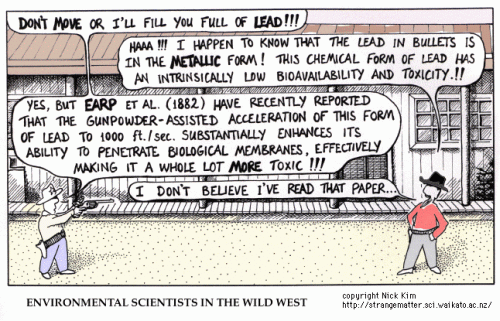 DON'T MOVE OR I'LL FILL YOU FULL OF LEAD!!!
HAAA!!! I HAPPEN TO KNOW THAT THE LEAD IN BULLETS IS
IN THE METALLIC FORM! THIS CHEMICAL FORM OF LEAD HAS
AN INTRINSICALLY LOW BIOAVAILABILITY AND TOXICITY.!!
YES, BUT EARP ET AL. (1882) HAVE RECENTLY REPORTED
THAT THE GUNPOWDER-ASSISTED ACCELERATION OF THIS FORM
OF LEAD TO 1000 ft./sec. SUBSTANTIALLY ENHANCES ITS
ABILITY TO PENETRATE BIOLOGICAL MEMBRANES, EFFECTIVELY
MAKING IT A WHOLE LOT MORE TOXIC!!!
I DON'T BELIEVE I'VE READ THAT PAPER...
ENVIRONMENTAL SCIENTISTS IN THE WILD WEST
copyright Nick Kim
http://strangematter.sci.waikato.ac.nz/